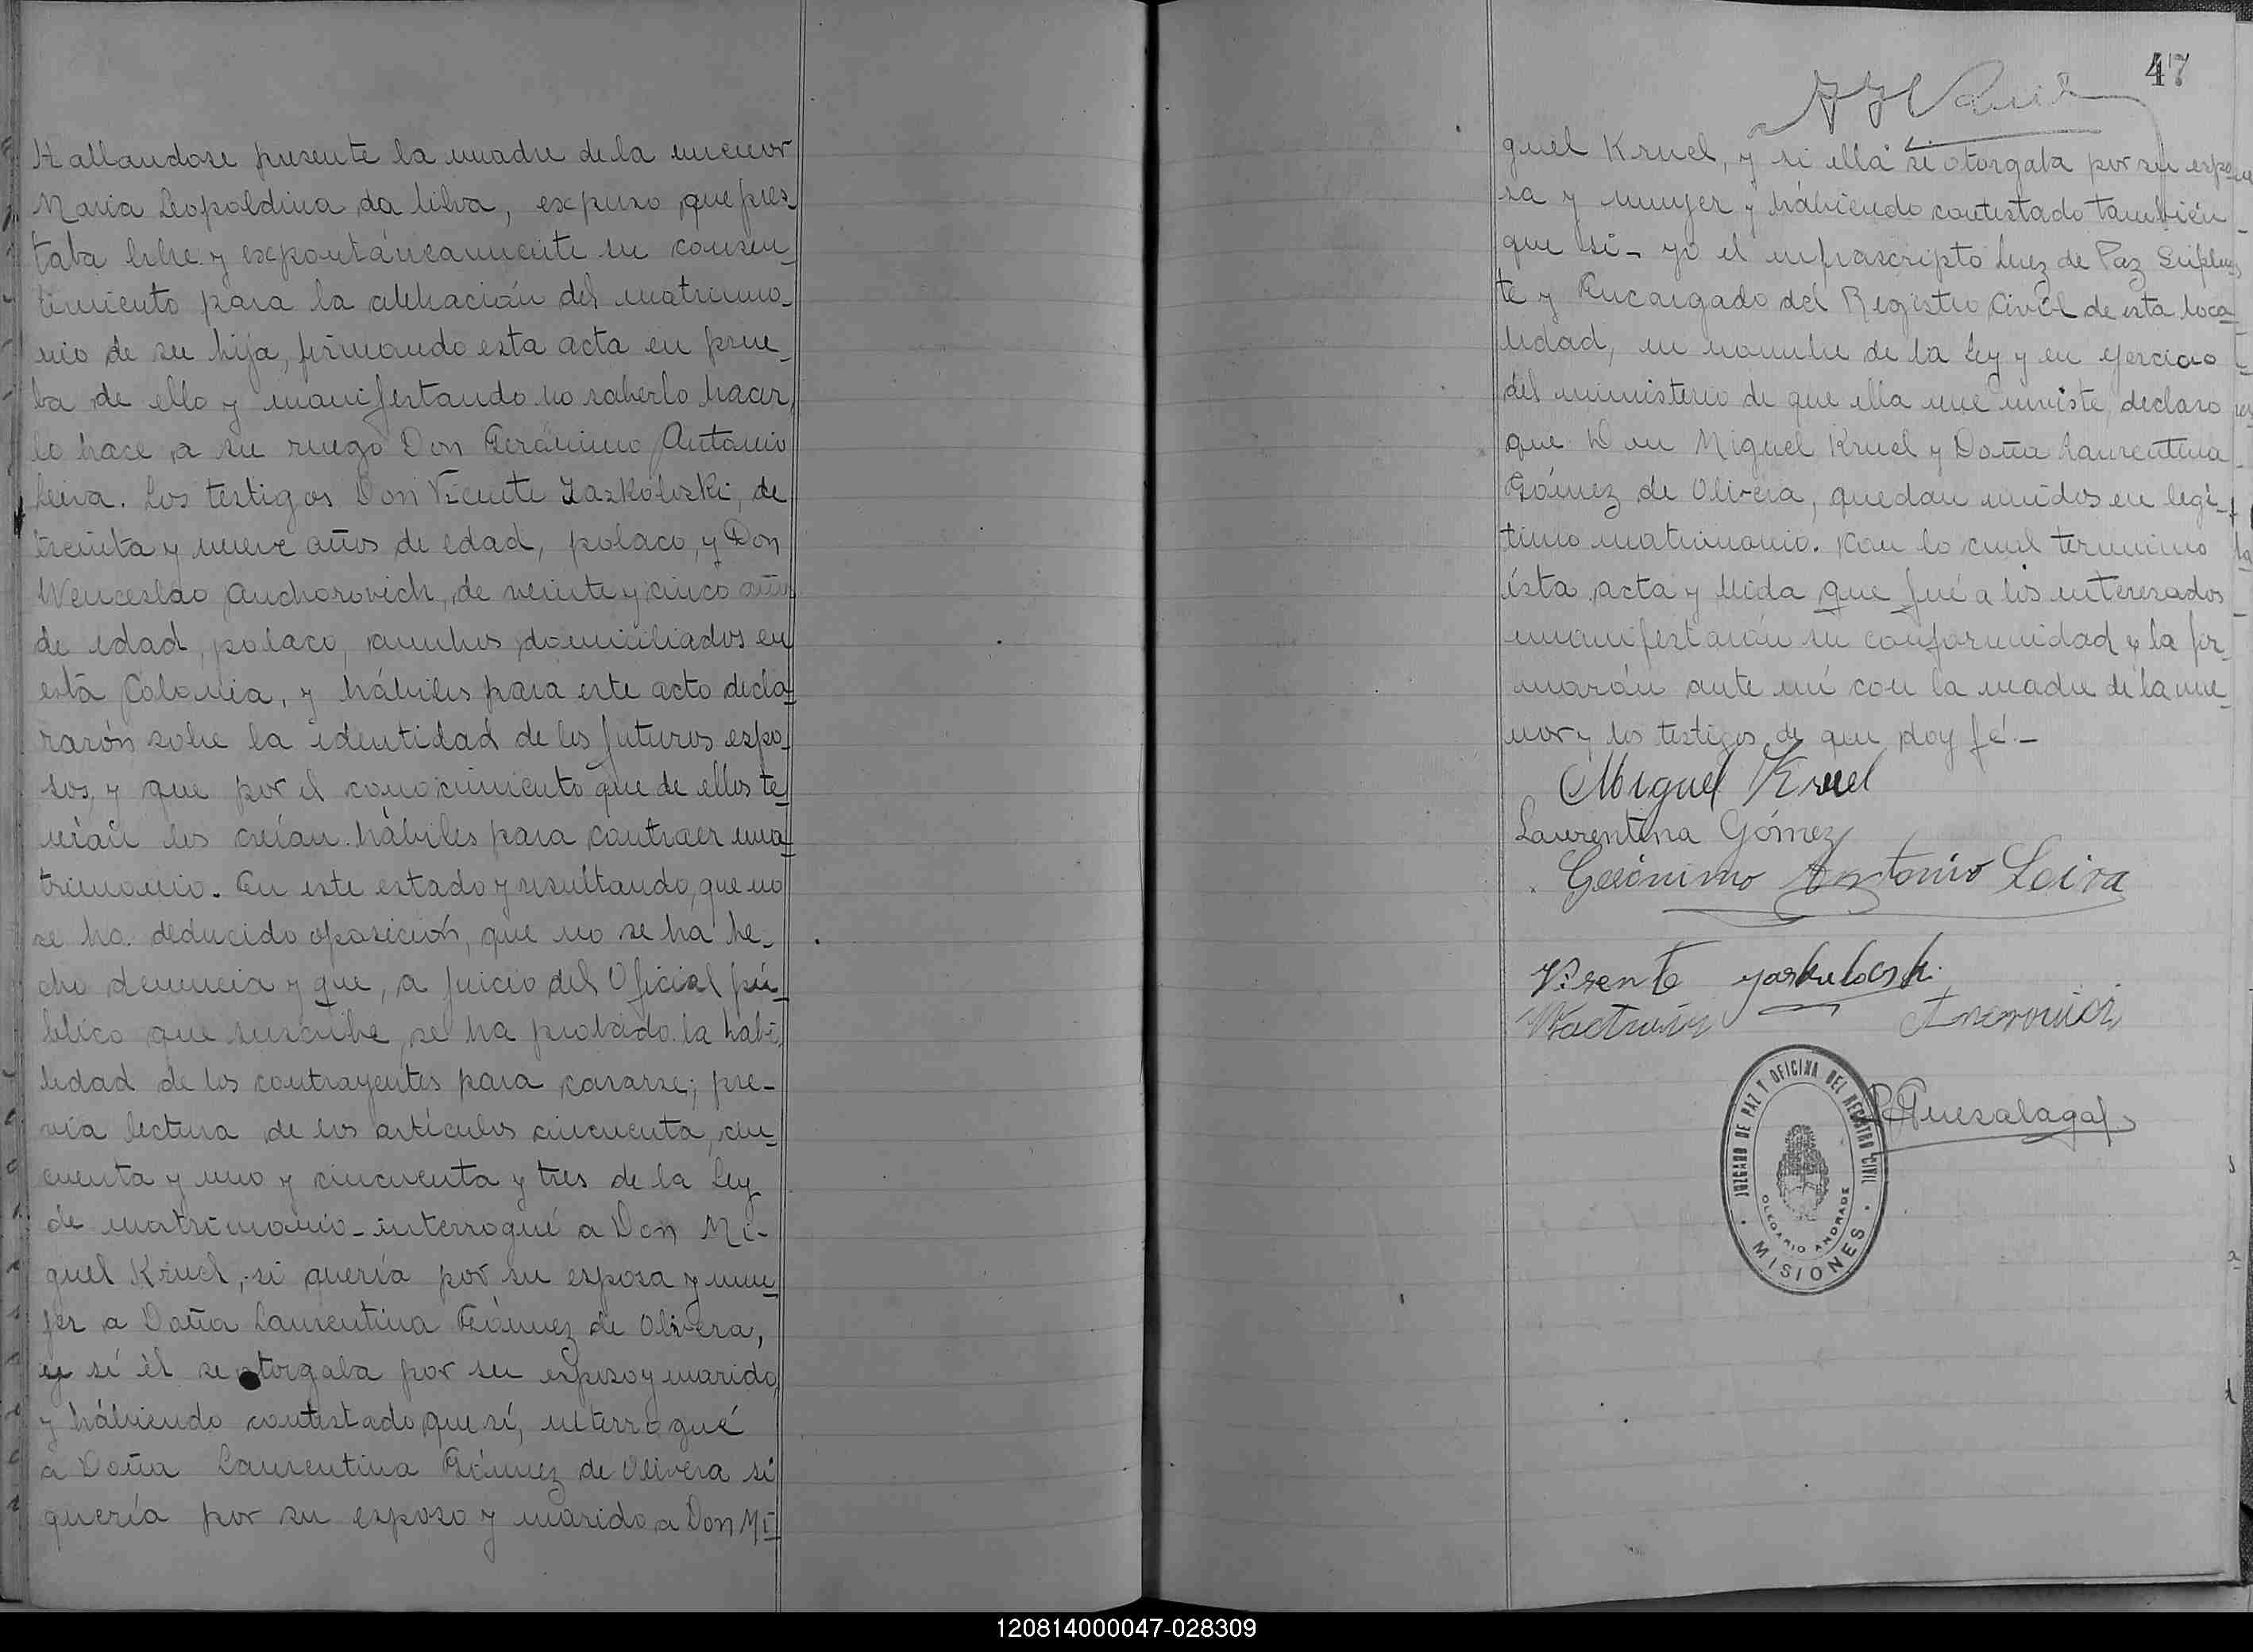 Hallandose presente la madre de la menor
Maria Leopoldina da Silva, expuso que pres_
taba libre y expontáneamente su consen_
timiento para la celebración del matrimo_
nio de su hija, firmando esta acta en prue_
ba de ello y manifestando no saberlo hacer,
lo hace a su ruego Don Gerónimo Antonio
Leiva. Los testigos Don Vicente Jaskolvski, de
treinta y nueve años de edad, polaco, y Don
Wenceslao Anchorovich, de veinte y cinco años
de edad, polaco, ambos domiciliados en
esta Colonia, y hábiles para este acto decla_
rarón sobre la identidad de los futuros espo_
sos, y que por el conocimiento que de ellos te_
nían los creían hábiles para contraer ma_
trimonio. En este estado y resultando, que no
se ha deducido oposición, que no se ha he_
cho denuncia y que, a juicio del Oficial pú_
blico que suscribe, se ha probado la habi_
lidad de los contrayentes para casarse; pre-
via lectura de los artículos cincuenta, cin_
cuenta y uno y cincuenta y tres de la Ley
de matrimonio - interrogué a Don Mi-
guel Kruel, si quería por su esposa y mu_
jer a Doña Laurentina Gómez de Olivera,
y sí él se otorgaba por su esposo y marido,
y hábiendo contestado que sí, interrogué
a Doña Laurentina Gómez de Olivera si
quería por su esposo y marido a Don Mi_
47
guel Kruel, y si ella se otorgaba por su espo_
sa y mujer y hábiendo contestado también
que si - yo el infrascripto Juez de Paz Suplen_
te y Encargado del Registro Civil de esta loca_
lidad, en nombre de la Ley y en ejercicio
del ministerio de que ella me inviste, declaro
que Don Miguel Kruel y Doña Laurentina
Gómez de Olivera, quedan unidos en legí_
timo matrimonio. Con lo cual termino
ésta acta y leida que fué a los interesados
manifestarón su conformidad y la fir_
marón ante mí con la madre de la me_
nor y los testigos de que doy fé.-
Miguel Kruel
Laurentina Gómez
Gerónimo Antonio Leiva
Visente
JUZGADO DE PAZ Y OFICINA DEL REGISTRO CIVIL
OLEGARIO ANDRADE
MISIONES
120814000047-028309